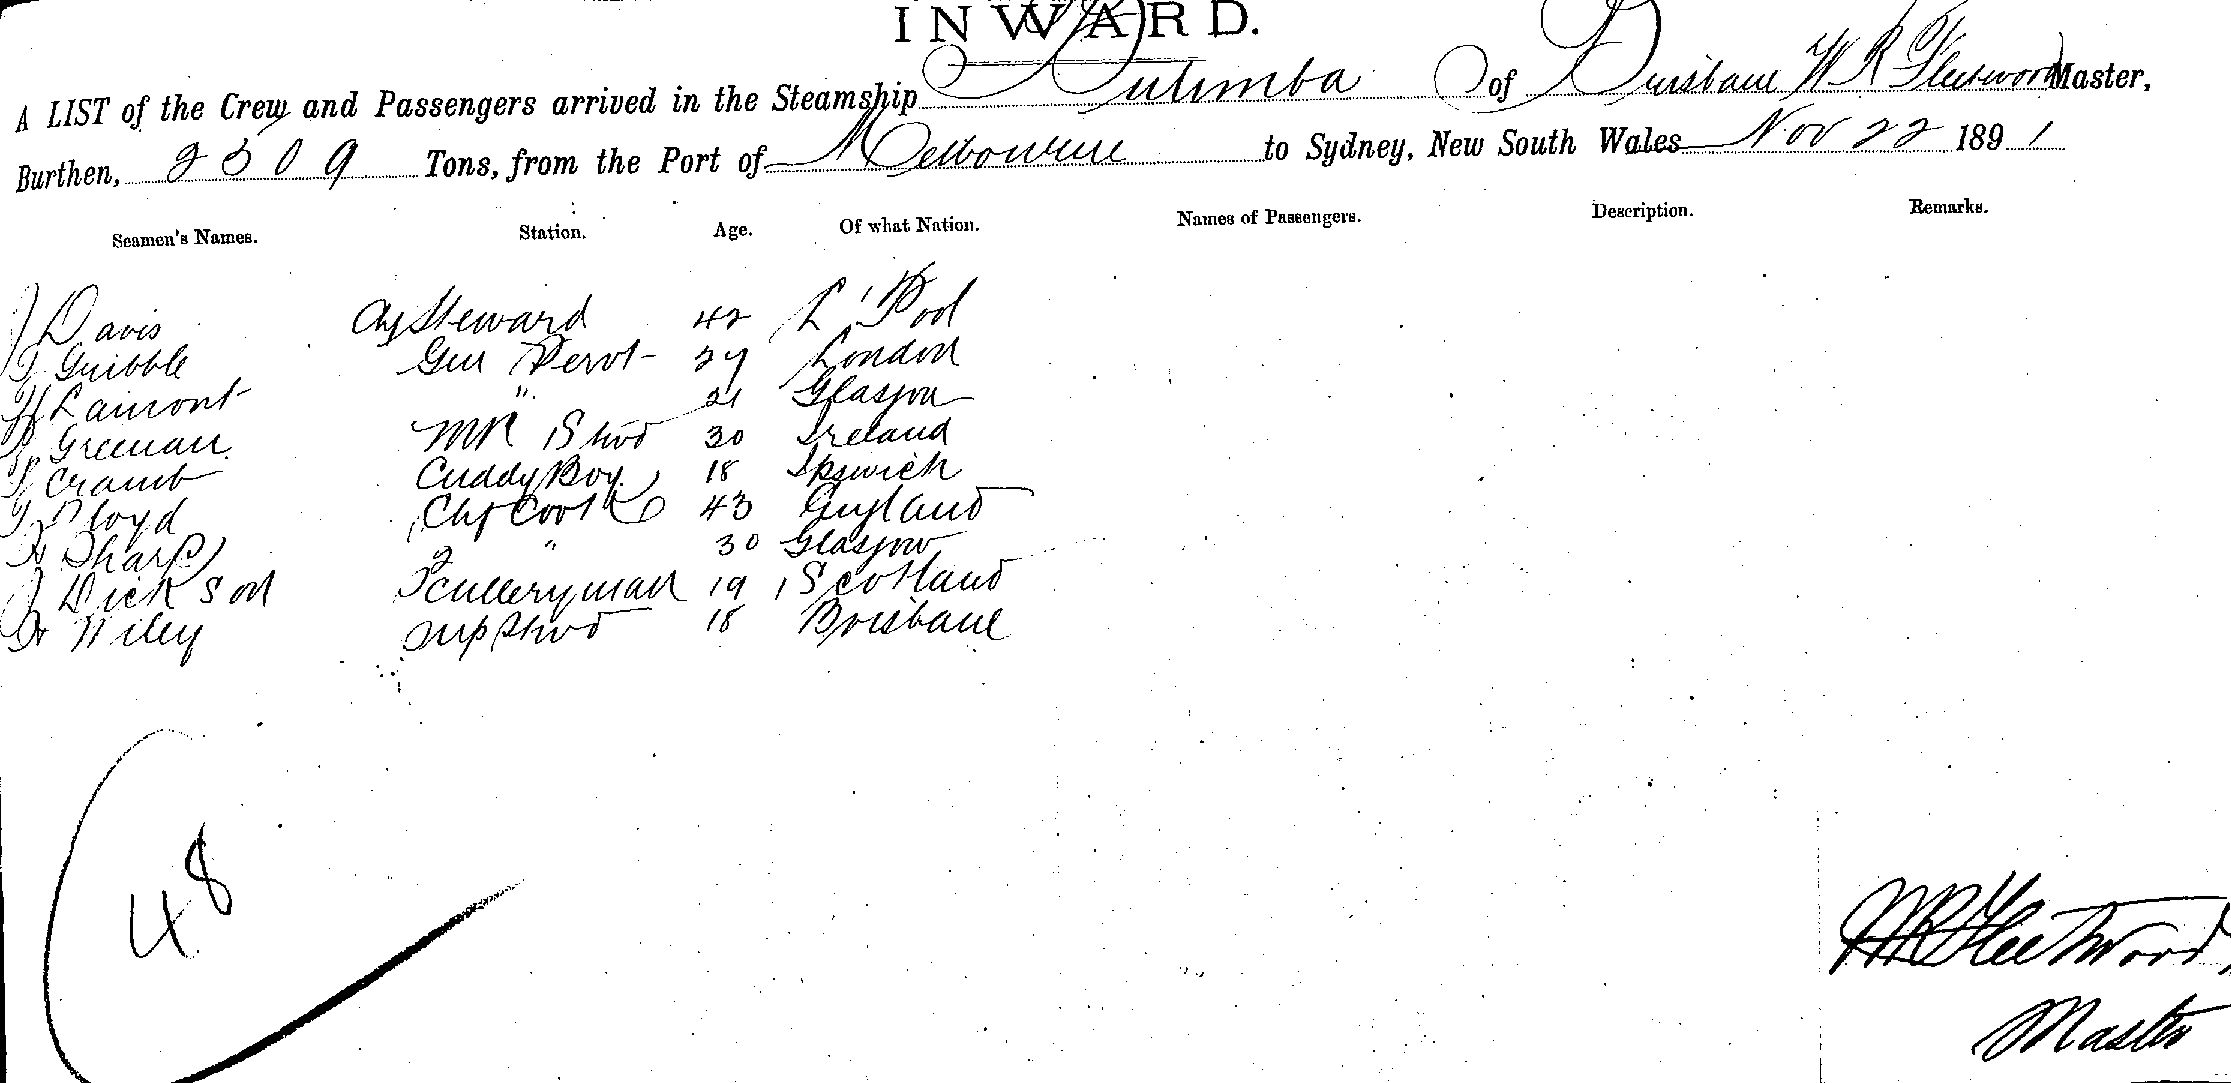 INWARD.
A LIST of the Crew and Passengers arrived in the Steamship Bulimba of Brisbane W R Fleetwood Master,
Burthen, 2509 Tons, from the Port of Melbourne to Sydney, New South Wales Nov 22 1891
Seamen's Names. Station. Age. Of what Nation. Names of Passengers. Description. Remarks.
J Davis Chf Steward 42 L'Pool
Gribble Gen Servt 27 London
H Lamont " 21 Glasgow
Greenan MR Stwd 30 Ireland
Cramb Cuddy Boy 18 Ipswich
Lloyd Chf Cook 43 England
Sharp 2 " 30 Glasgow
J Dickson Sculleryman 19 Scotland
Wiley Stwd 18 Brisbane
48
WR Fleetwood
Master